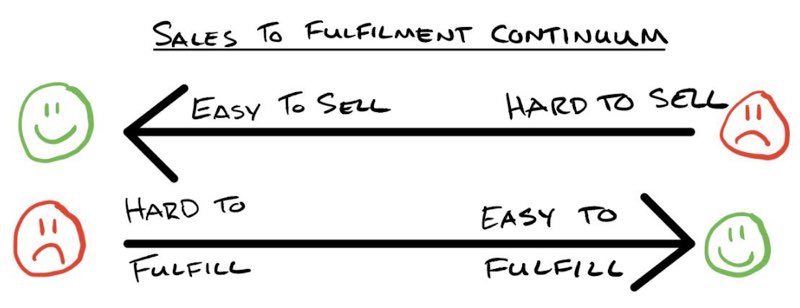 SALES TO FULFILMENT CONTINUUM
EASY TO SELL
HARD TO SELL
HARD TO
FULFILL
EASY TO
FULFILL